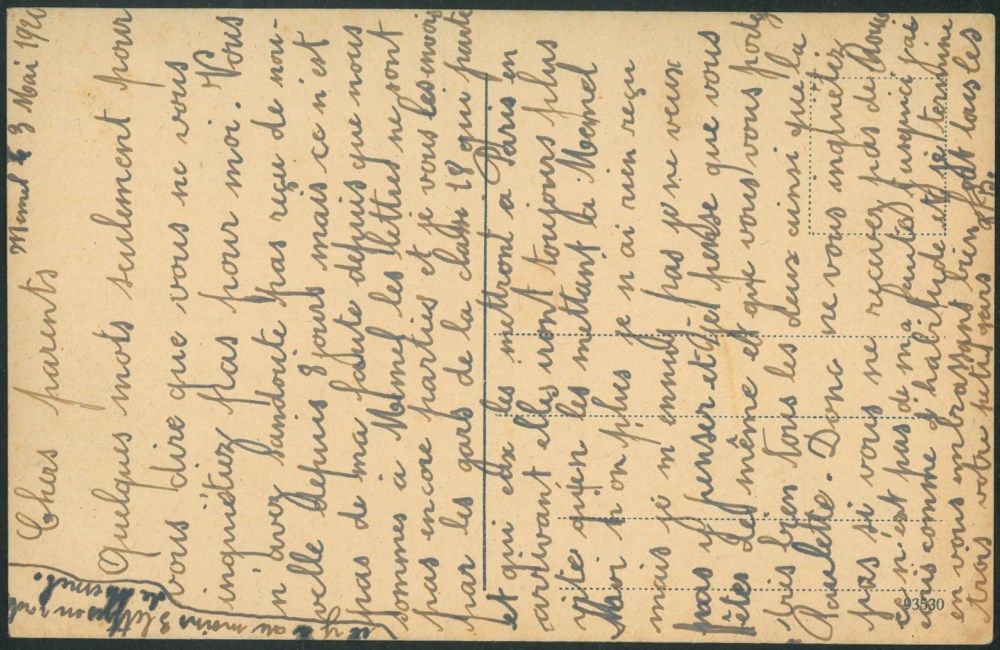 Memel le 3 Mai 192
Chers parents
Quelques mots seulement pour
vous dire que vous ne vous
inquiétiez pas pour moi. Vous
n avez sandoute pas reçu de nou-
velle depuis 8 jours mais ce n est
pas de ma faute depuis que nous
sommes à Memel les lettres ne sont
pas encore parties et je vous les envois
par les gars de la class 18 qui parte
et qui eux les mettront a Paris en
arrivant elles iront toujours plus
vite qu'en les mettant la Memel
Moi n on plus je n ai rien reçu
mais je m ennuy pas je ne veux
pas y penser et je pense que vous
êtes de même et que vous vous porte
fois bien tous les deux ainsi que la
Paulette. Donc ne vous inquietez
pas si vous ne recevez pas de
ce n'est pas de ma faute jusqu'ici j'ai
ecris comme d'habitude et je termine
en vous embrassant bien fort tous les
trois votre petit gars
il y a au moins 3 lettres en route
de Memel.
93530